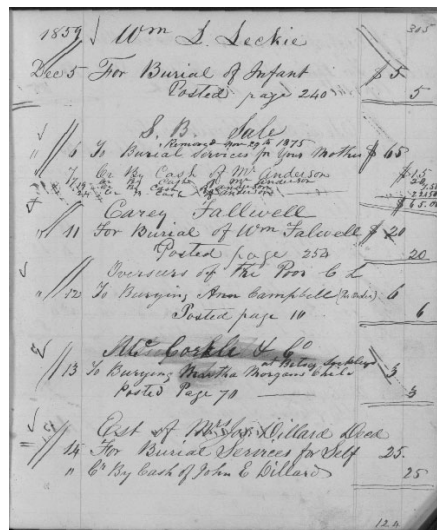 1859 Wm S. Leckie 305
Dec 5 For Burial of Infant $5
Posted page 240 5
S. B. Sale
Removed Nov 29th 1875
" 6 To Burial Services for Your Mother $65
Cr By Cash of Mr Anderson $15
$65.00
Carey Fallwell
" 11 For Burial of Wm Falwell $20
Posted page 254 20
Overseers of the Poor C L
" 12 To Burying Ann Campbell 6
Posted page 10 6
Mc Corkle & Co
13 To Burying Martha Morgans Child 3
Posted Page 70 3
Est of Mrs Jos Dillard Decd
14 For Burial Services for Self 25.
" Cr By Cash of John E Dillard 25
124